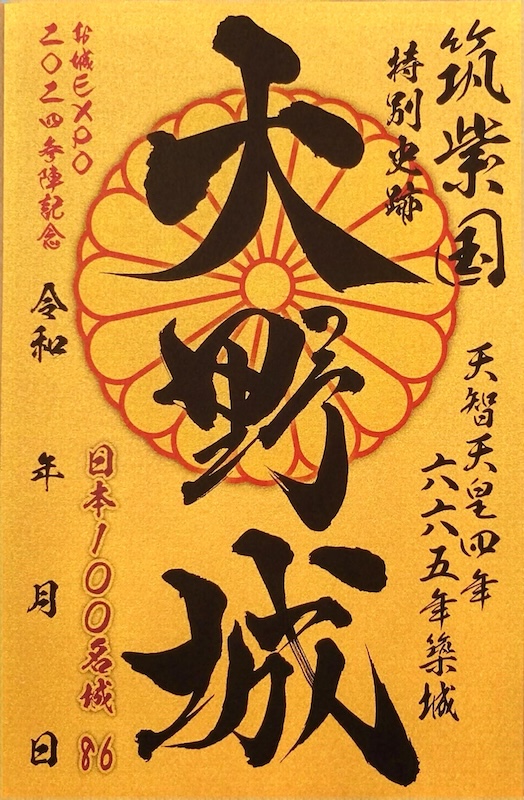 筑紫国
特別史跡
天智天皇四年
六六五年築城
大野城
お城EXPO
二〇二四参陣記念
日本100名城 86
令和 年 月 日